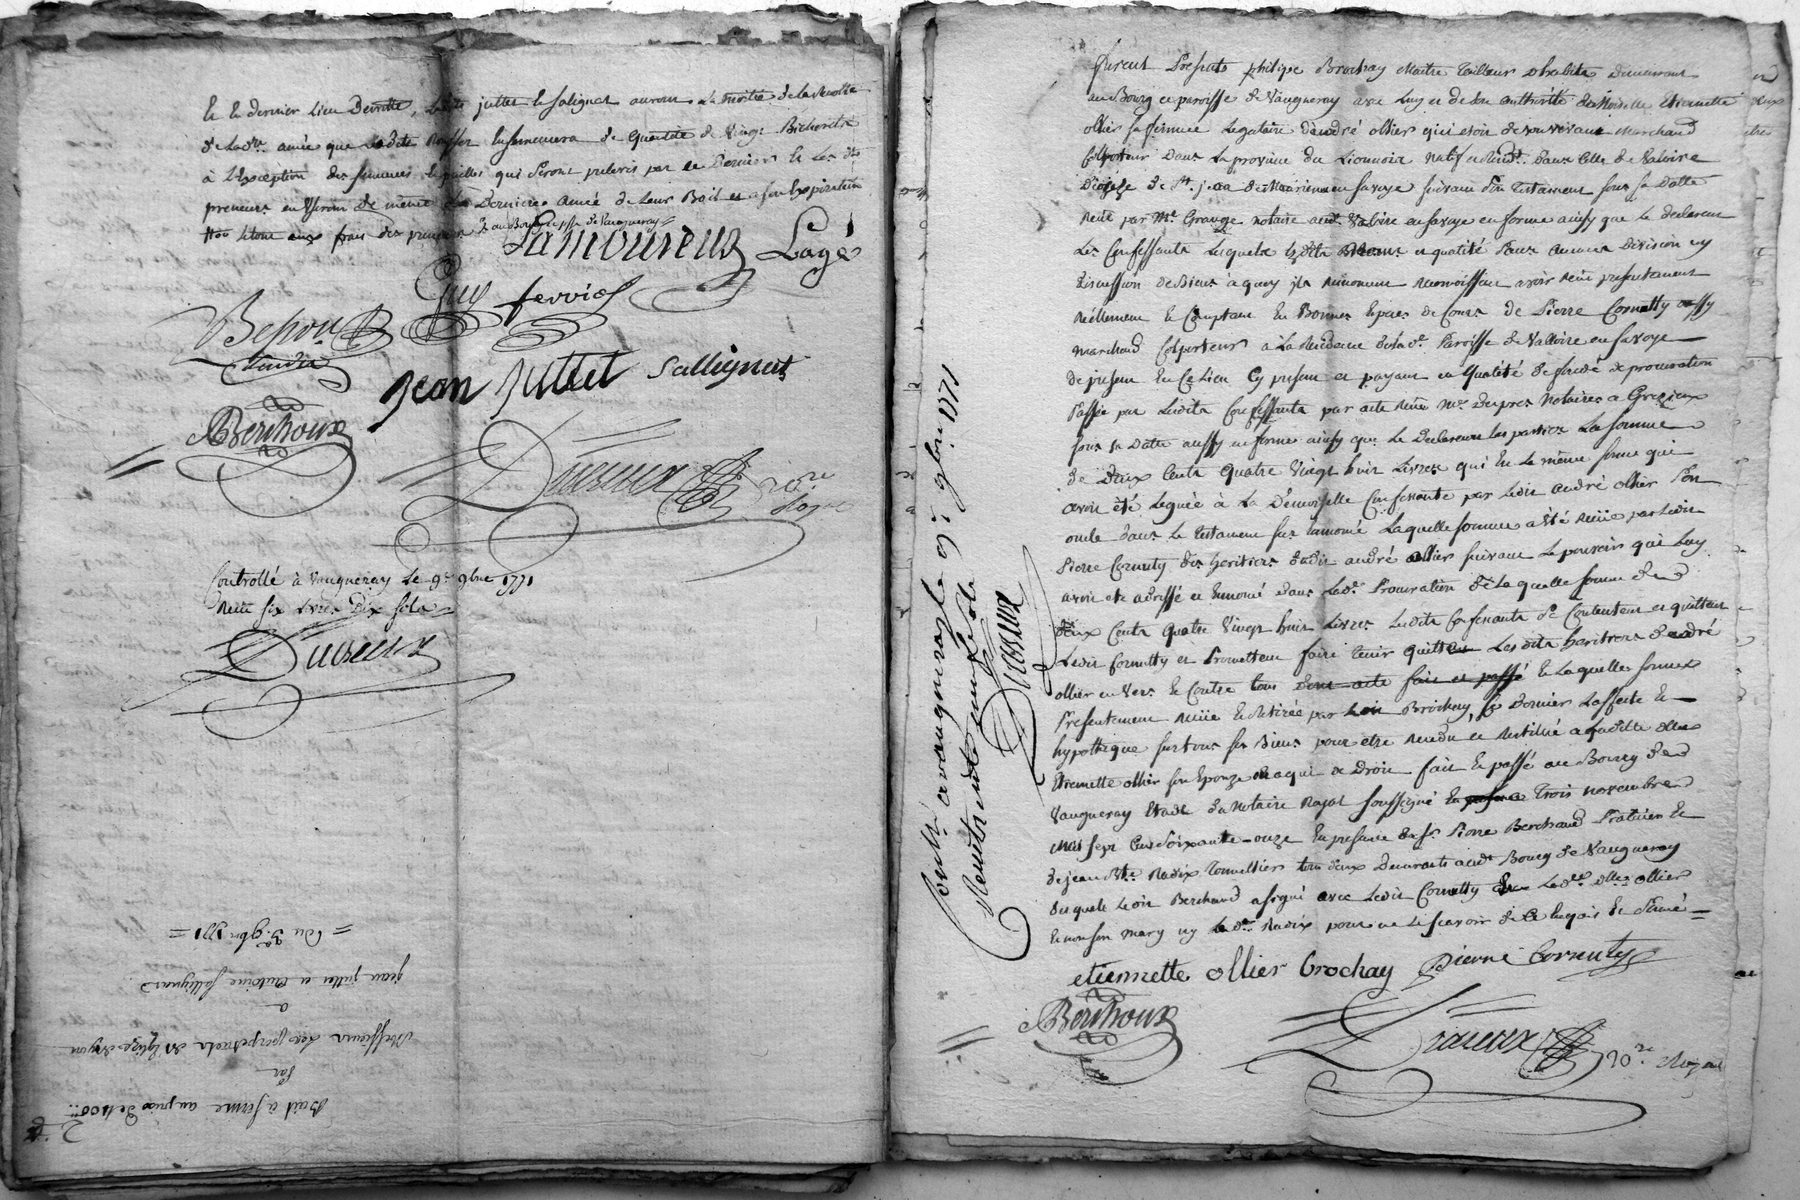 Et le dernier lieu , jullet et salignat auront la moitié de la recolte
de la dre année que ensemencera de quantité de vingt Bichets
à l'exception des qui seront prelevés par ce dernier et les dts
preneurs en useront de même la derniere année de leur Bail et a son expiration
aux frais des preneurs
Lamoureux Lagé
Guy ferriol
Jean Jullet Sallignat
Berthoux
Ducreux nore
Royal
Controllé à Vaugneray le 9e 9bre 1771
Reçu six livres dix sols
Ducreux
Bail à ferme au prix de 400tt
Par
Messieurs Les perpetuels de l'Eglise
a
jean jullet et antoine sallignat
= Du 3e 9bre 1771 =
furent Presents philipe Brochay Maitre Tailleur d'habits demeurant
au Bourg et paroisse de Vaugneray avec luy et de son authorité demoiselle Etiennette
ollier sa femme Legataire d'andré ollier qui etoit de son vivant Marchand
Colporteur dans La province du Lionnois natif dans Celle de Valoire
Diocèse de St jean de Maurienne en savoye suivant son testament sous sa datte
Reçu par Me Grange notaire audt Valoire en savoye en forme ainsy que le declarent
Les Confessants Lesquels en qualité sans aucune division ny
discussion de Biens a quoy ils renoncent reconnoissent avoir reçu presentement
réellement et Comptant en Bonnes Espèces de Cours de Pierre Cornutty aussy
marchand Colporteur à la residence de la de Paroisse de Valloire en savoye
de present en Ce Lieu Cy present et payant en qualité de fondé de procuration
Passée par Lesdits Confessants par acte reçu Me notaire a Grezieux
sous sa datte aussy en forme ainsy que le declarent les parties La somme
de deux Cents quatre vingt huit Livres qui en la même somme qui
avoit été Leguée à La Demoiselle Confessante par ledit andré ollier son
oncle dans le testament sus Laquelle somme a été reçüe par ledit
Pierre Cornuty des heritiers dudit andré ollier suivant le pouvoir qui luy
avoit été adressé et dans lade Procuration de laquelle somme de
deux Cents quatre vingt huit Livres Lesdits Confessants se Contentent et quittent
Ledit Cornutty et Promettent faire tenir quittes Lesdits heritiers d'andré
ollier envers et Contre tous dont acte fait et passé et Laquelle somme
Presentement reçüe et retirée par Ledit Brochay, ce dernier L'assecte et
hypothèque sur tous ses Biens pour etre rendu et restitué a ladite
Etiennette ollier son Epouze ou a qui de Droit fait et passé au Bourg de
Vaugneray Etude du notaire Royal soussigné le trois novembre
Mil sept Cent Soixante-onze En presence de sr Pierre Berthoud Praticien et
de jean Bte Radix tonnellier tous deux demeurants audt Bourg de Vaugneray
desquels Ledit Berthoud a signé avec Ledit Cornutty et Lade dlle ollier
et non son mary ny led. Radix pour ne le scavoir de Ce Enquis et sommés
etiennette ollier brochay pierre Cornuty
Berthoux
Ducreux nore Royal
Contr. a vaugneray le 9e 9bre 1771
Ducreux